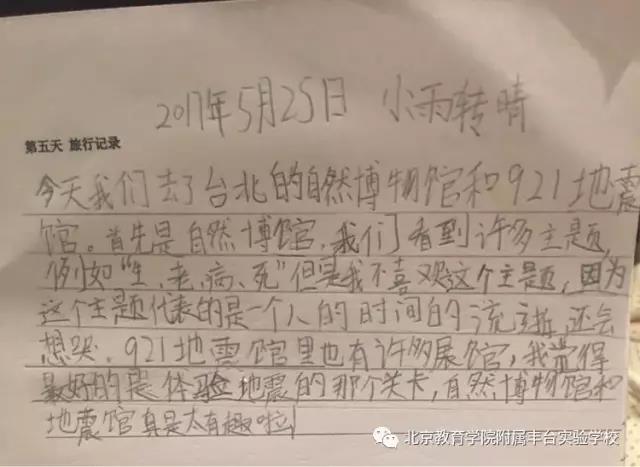 2017年5月25日 小雨转晴
第五天 旅行记录
今天我们去了台北的自然博物馆和921地震
馆。首先是自然博馆,我们看到许多主题,
例如“生、老、病、死”但是我不喜欢这个主题,因为
这个主题代表的是一个人的时间的流逝,还会
想哭。921地震馆里也有许多展馆,我觉得
最好的是体验地震的那个关卡,自然博物馆和
地震馆真是太有趣啦!
北京教育学院附属丰台实验学校